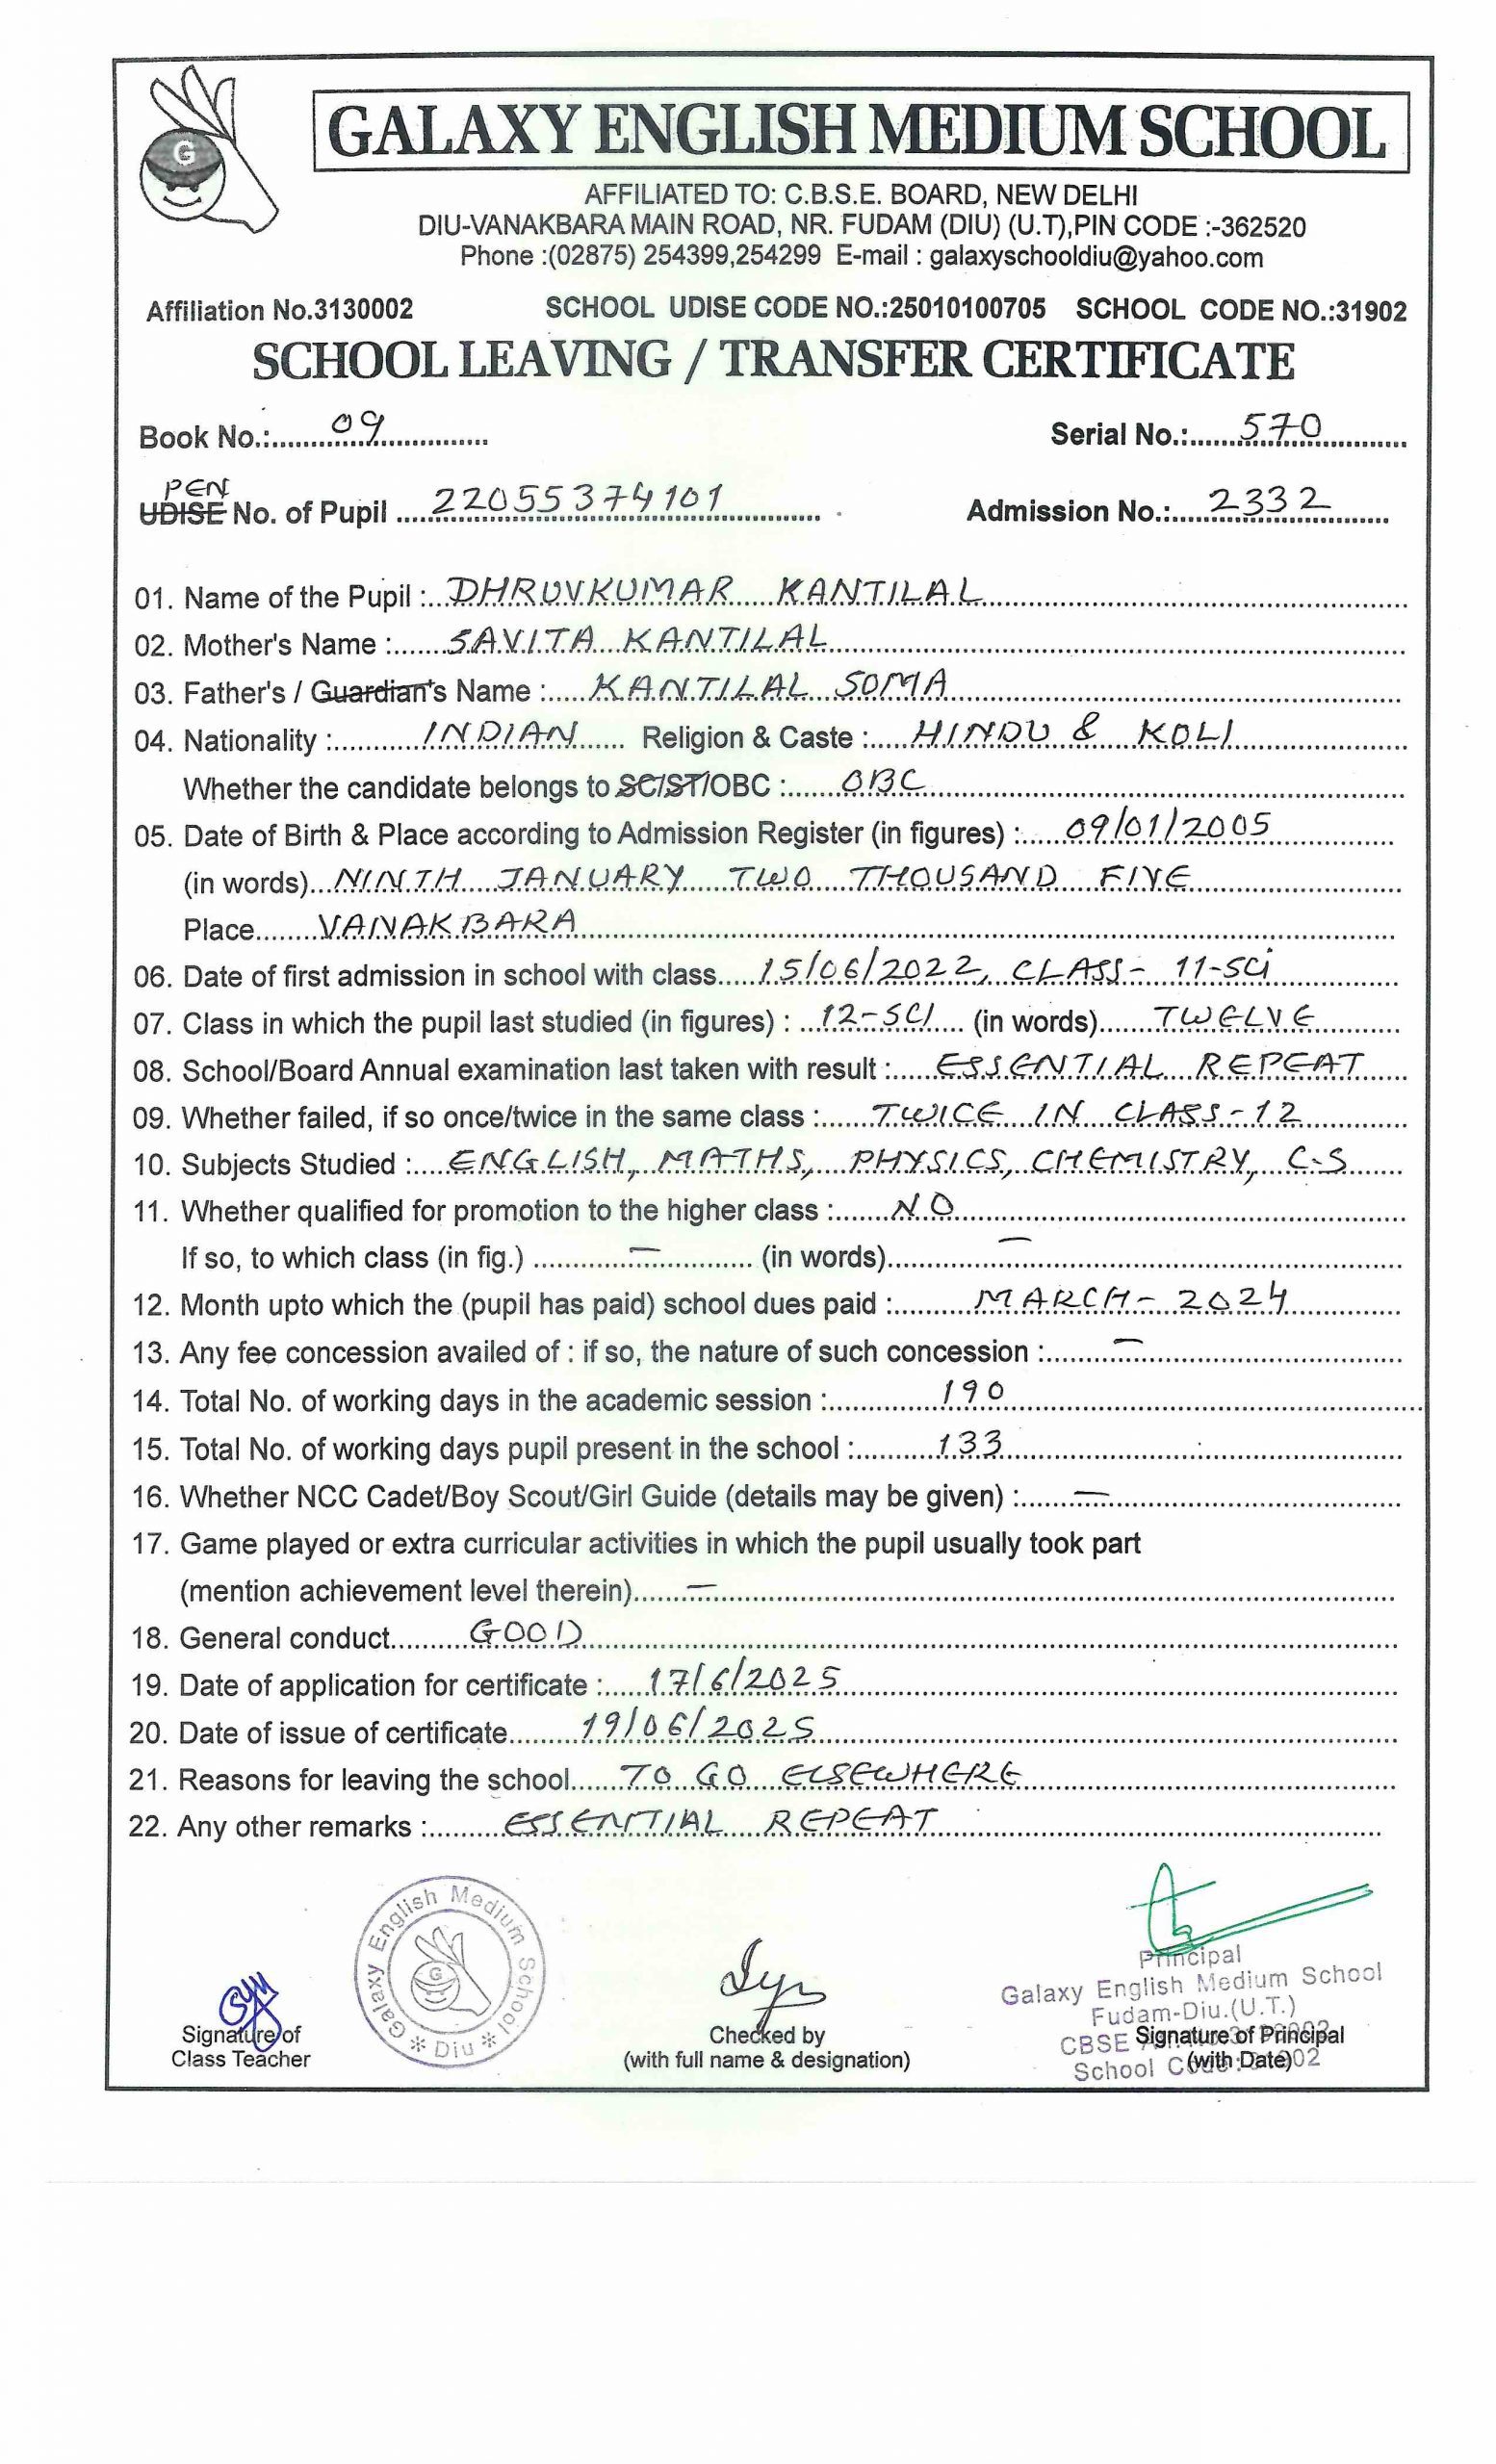 G
GALAXY ENGLISH MEDIUM SCHOOL
AFFILIATED TO: C.B.S.E. BOARD, NEW DELHI
DIU-VANAKBARA MAIN ROAD, NR. FUDAM (DIU) (U.T),PIN CODE :-362520
Phone :(02875) 254399,254299 E-mail : galaxyschooldiu@yahoo.com
Affiliation No.3130002 SCHOOL UDISE CODE NO.:25010100705 SCHOOL CODE NO.:31902
SCHOOL LEAVING / TRANSFER CERTIFICATE
Book No.: 09 Serial No.: 570
PEN
UDISE No. of Pupil 22055374101 Admission No.: 2332
01. Name of the Pupil : DHRUVKUMAR KANTILAL
02. Mother's Name : SAVITA KANTILAL
03. Father's / Guardian's Name : KANTILAL SOMA
04. Nationality : INDIAN Religion & Caste : HINDU & KOLI
Whether the candidate belongs to SC/ST/OBC : OBC
05. Date of Birth & Place according to Admission Register (in figures) : 09/01/2005
(in words) NINTH JANUARY TWO THOUSAND FIVE
Place VANAKBARA
06. Date of first admission in school with class 15/06/2022, CLASS- 11-SCi
07. Class in which the pupil last studied (in figures) : 12-SCI (in words) TWELVE
08. School/Board Annual examination last taken with result : ESSENTIAL REPEAT
09. Whether failed, if so once/twice in the same class : TWICE IN CLASS-12
10. Subjects Studied : ENGLISH, MATHS, PHYSICS, CHEMISTRY, C-S
11. Whether qualified for promotion to the higher class : NO
If so, to which class (in fig.) — (in words) —
12. Month upto which the (pupil has paid) school dues paid : MARCH- 2024
13. Any fee concession availed of : if so, the nature of such concession : —
14. Total No. of working days in the academic session : 190
15. Total No. of working days pupil present in the school : 133
16. Whether NCC Cadet/Boy Scout/Girl Guide (details may be given) : —
17. Game played or extra curricular activities in which the pupil usually took part
(mention achievement level therein) —
18. General conduct GOOD
19. Date of application for certificate : 17/6/2025
20. Date of issue of certificate 19/06/2025
21. Reasons for leaving the school TO GO ELSEWHERE
22. Any other remarks : ESSENTIAL REPEAT
Galaxy English Medium School
* Diu *
G
Principal
Galaxy English Medium School
Fudam-Diu.(U.T.)
CBSE
School
Signature of
Class Teacher
Checked by
(with full name & designation)
Signature of Principal
(with Date)